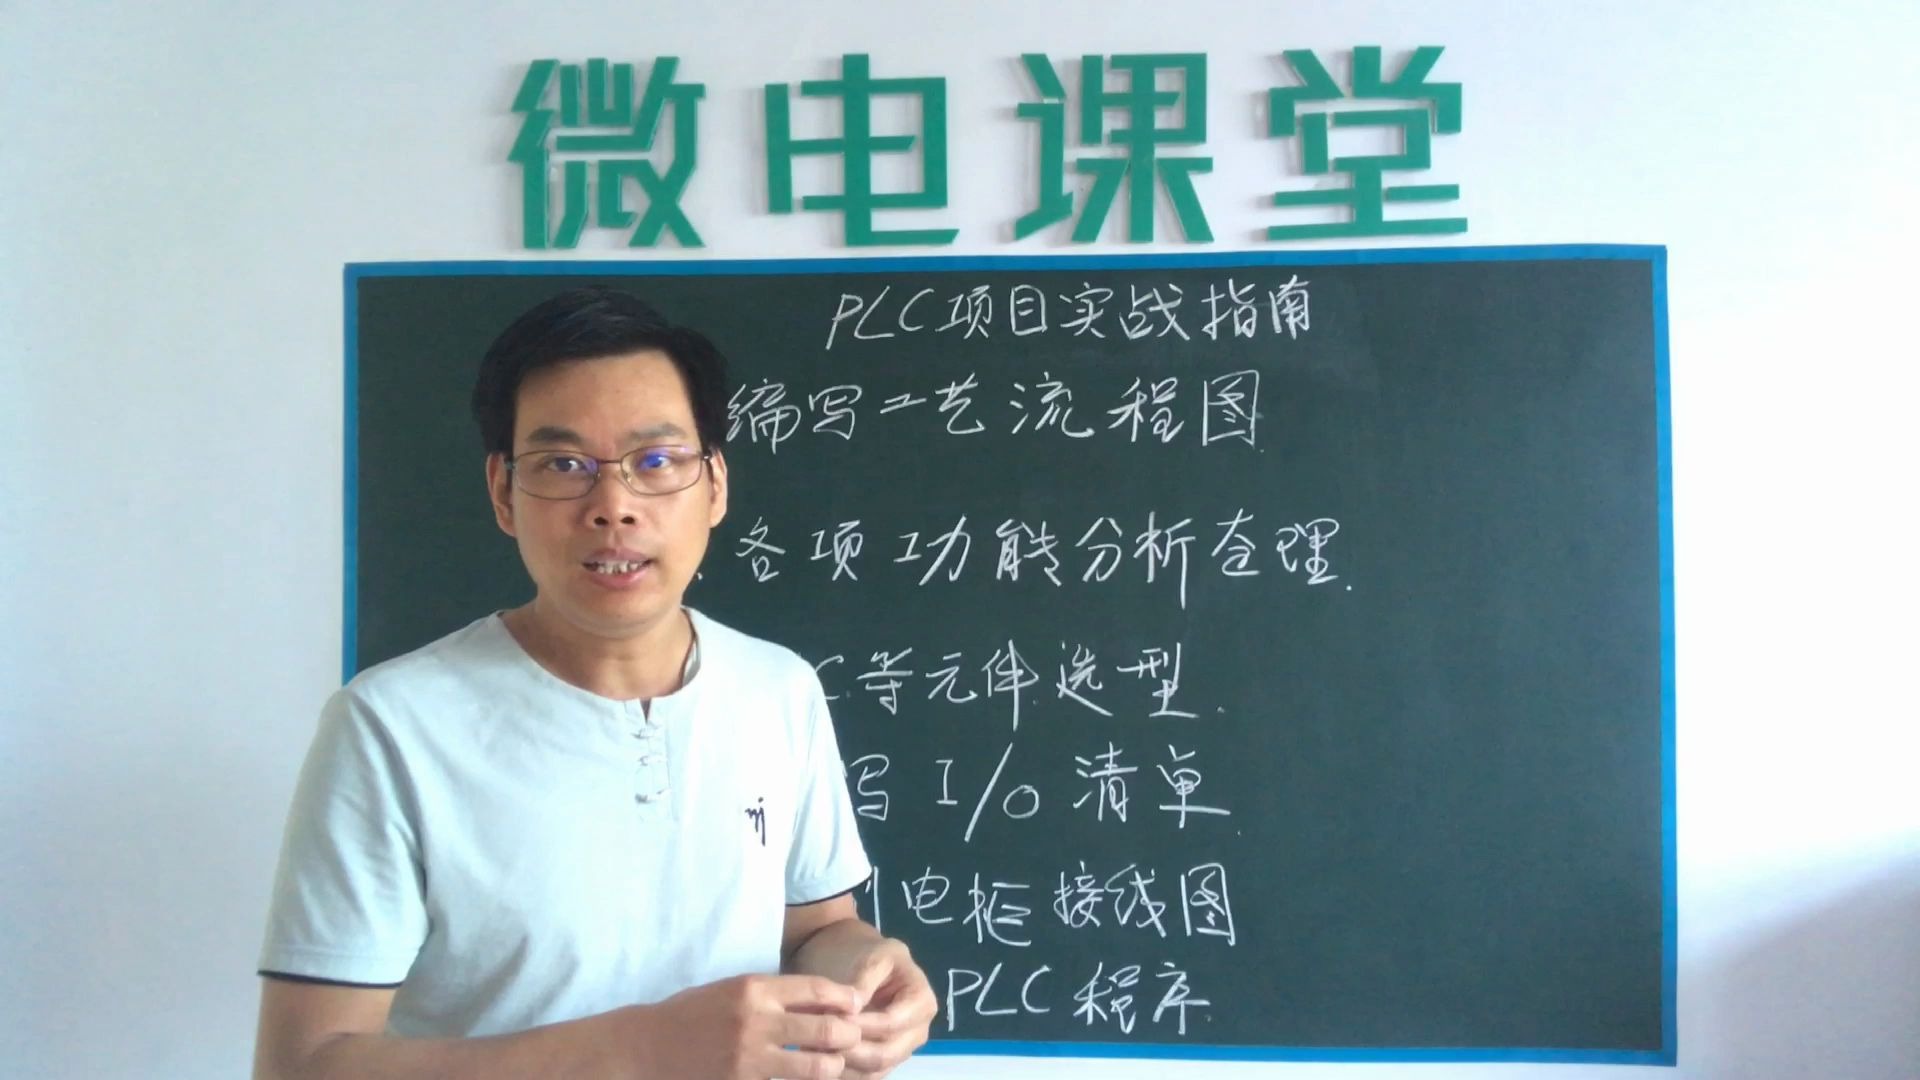 微电课堂
PLC项目实战指南
编写工艺流程图
各项功能分析合理.
C等元件选型.
写I/O清单.
电柜接线图
PLC程序.